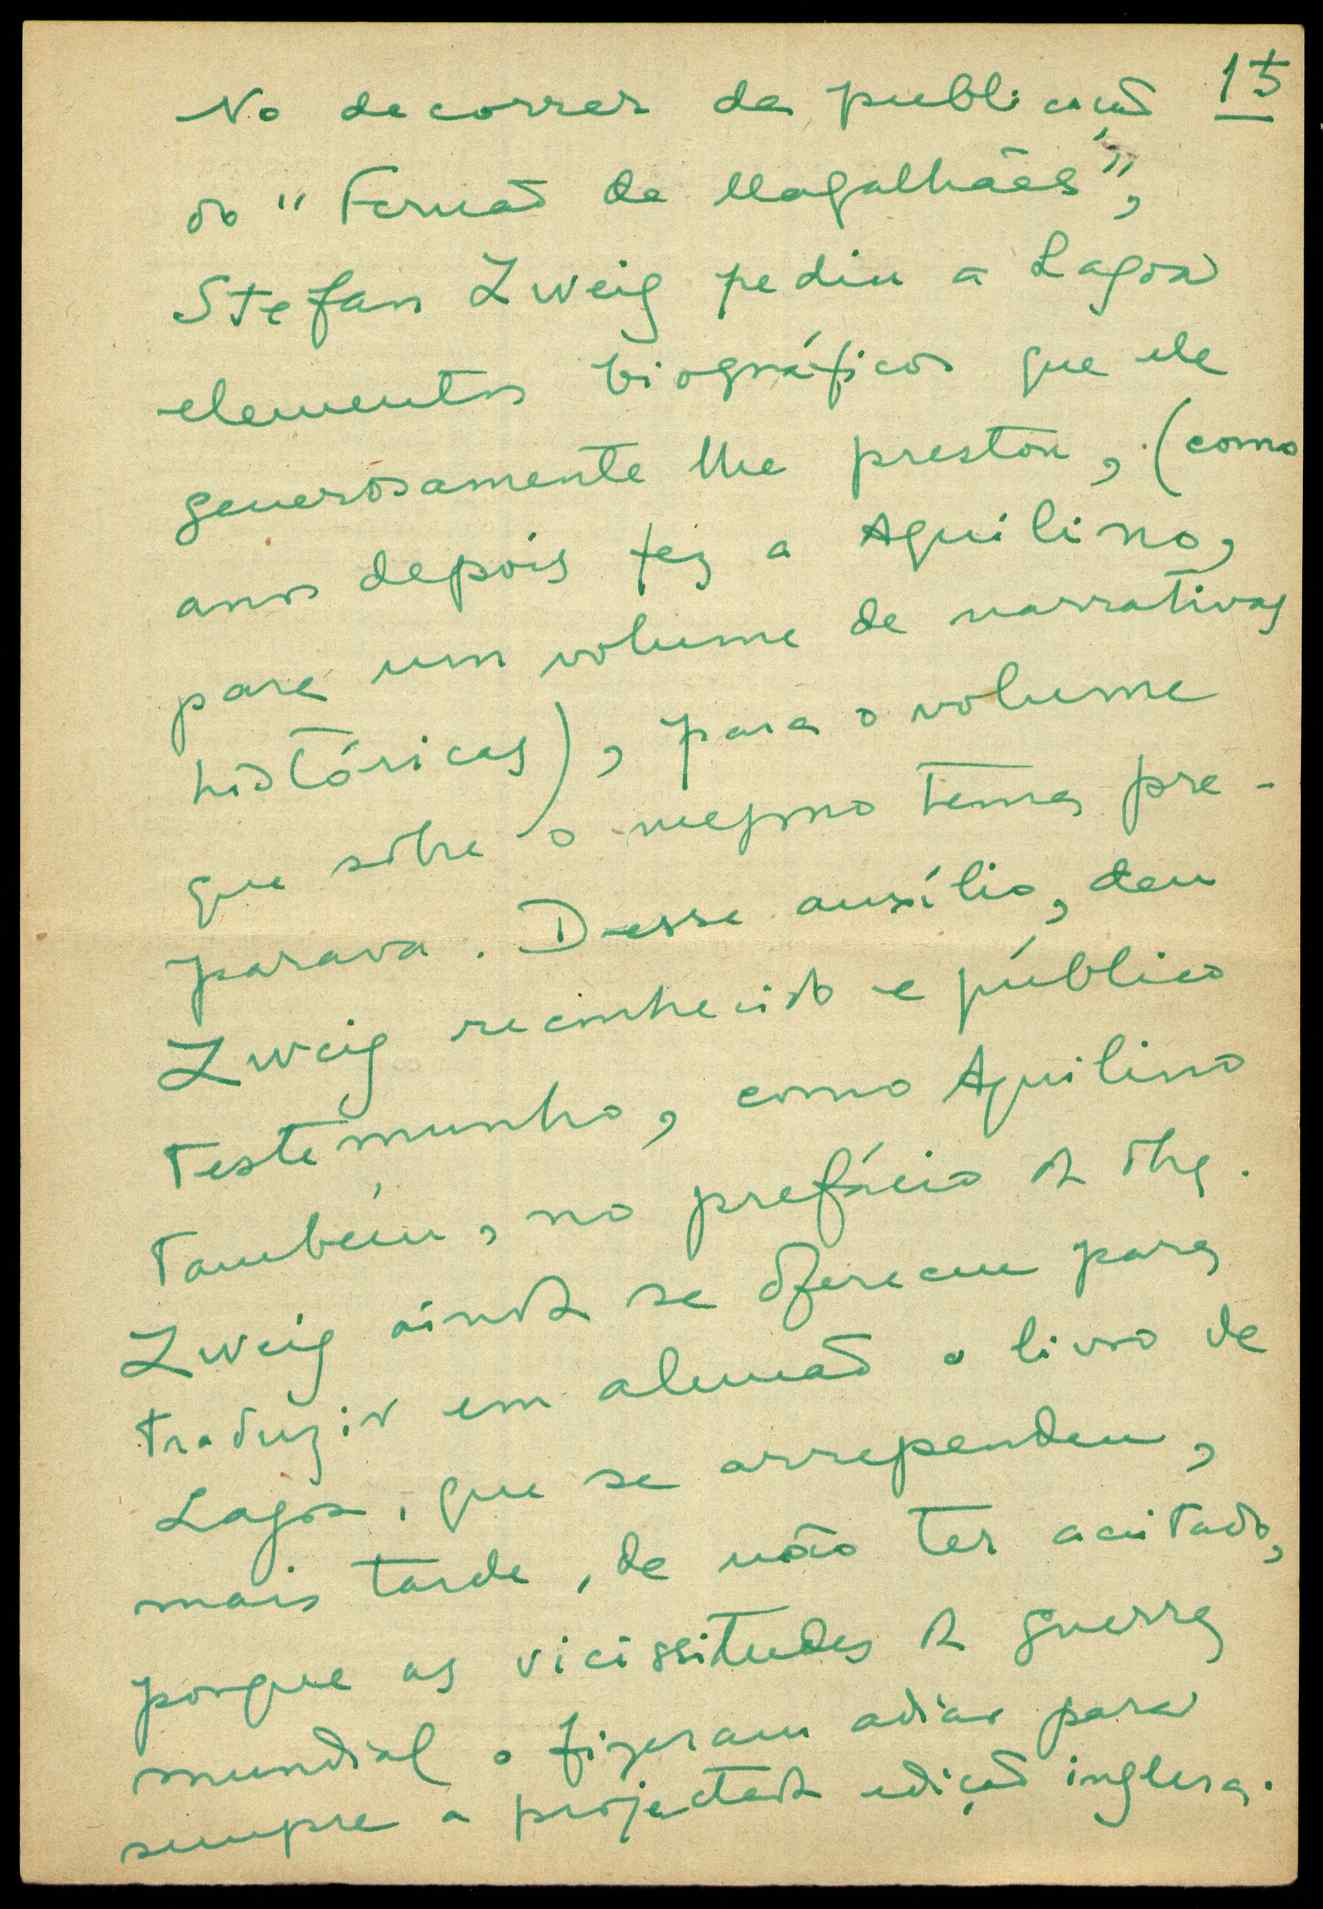 15
No decorrer da publicação
do "Fernão de Magalhães",
Stefan Zweig pediu a Lagoa
elementos biográficos que ele
generosamente lhe prestou, (como
anos depois fez a Aquilino,
para um volume de narrativas
históricas), para o volume
que sôbre o mesmo tema pre-
parava. Desse auxílio, deu
Zweig reconhecido e público
testemunho, como Aquilino
também, no prefácio da obra.
Zweig ainda se ofereceu para
traduzir em alemão o livro de
Lagoa, que se arrependeu,
mais tarde, de não ter aceitado,
porque as vicissitudes da guerra
mundial o fizeram adiar para
sempre a projectada edição inglesa.